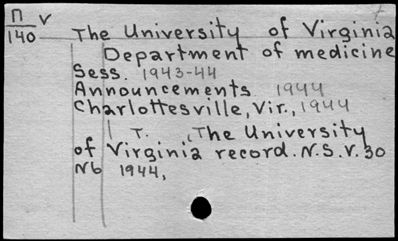 П v
140 The University of Virginia
Department of medicine
Sess. 1943-44
Announcements 1944
Charlottesville, Vir., 1944
T. , The University
of Virginia record. N.S.V. 30
N6 1944,